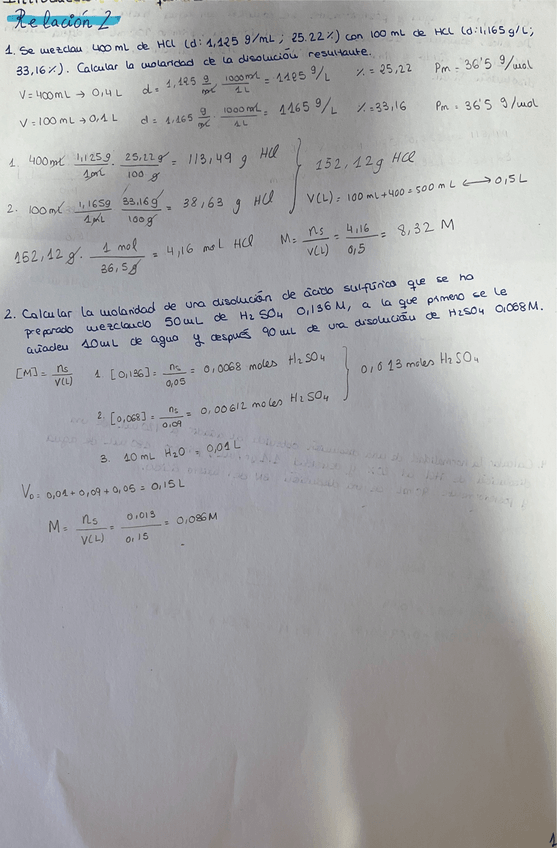 Relación 2
1. Se mezclan 400 mL de HCl (d: 1,125 g/mL ; 25.22%) con 100 mL de HCl (d:1,165 g/L;
33,16%). Calcular la molaridad de la disolución resultante.
V=400mL → 0,4L d= 1,125 g/mL · 1000mL/1L = 1125 g/L %=25,22 Pm = 36'5 g/mol
V=100mL → 0,1L d= 1,165 g/mL · 1000mL/1L = 1165 g/L %=33,16 Pm = 36'5 g/mol
1. 400mL · 1,125g/1mL · 25,22g/100g = 113,49 g HCl
152,12g HCl
2. 100mL · 1,165g/1mL · 33,16g/100g = 38,63 g HCl
V(L) = 100mL+400=500mL ⟷ 0,5L
152,12g · 1 mol/36,5g = 4,16 mol HCl M= ns/V(L) = 4,16/0,5 = 8,32 M
2. Calcular la molaridad de una disolución de ácido sulfúrico que se ha
preparado mezclando 50mL de H2SO4 0,136M, a la que primero se le
añaden 10mL de agua y después 90mL de una disolución de H2SO4 0,068M.
[M]= ns/V(L) 1. [0,136]= ns/0,05 = 0,0068 moles H2SO4
0,013 moles H2SO4
2. [0,068]= ns/0,09 = 0,00612 moles H2SO4
3. 10mL H2O = 0,01L
V0= 0,01+0,09+0,05=0,15L
M= ns/V(L) = 0,013/0,15 = 0,086M
1